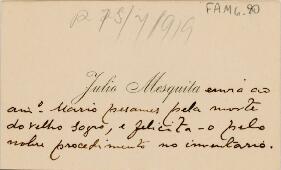 P 75/7/919
FAM6.90
Julio Mesquita envia ao
am.º Mario pesames pela morte
do velho sogro, e felicita-o pelo
nobre procedimento no inventario.